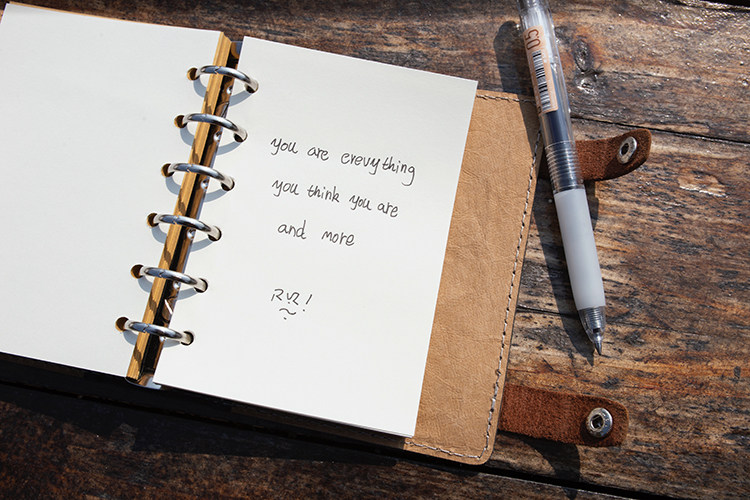 you are everything
you think you are
and more
05